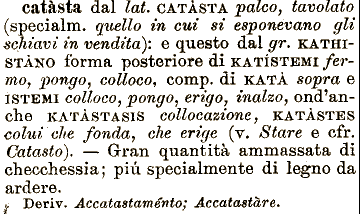 catàsta dal lat. CATÀSTA palco, tavolato
(specialm. quello in cui si esponevano gli
schiavi in vendita): e questo dal gr. KATHI-
STÀNO forma posteriore di KATÍSTEMI fer-
mo, pongo, colloco, comp. di KATÀ sopra e
ISTEMI colloco, pongo, erigo, inalzo, ond'an-
che KATÀSTASIS collocazione, KATÀSTES
colui che fonda, che erige (v. Stare e cfr.
Catasto). — Gran quantità ammassata di
checchessia; piú specialmente di legno da
ardere.
Deriv. Accatastaménto; Accatastàre.